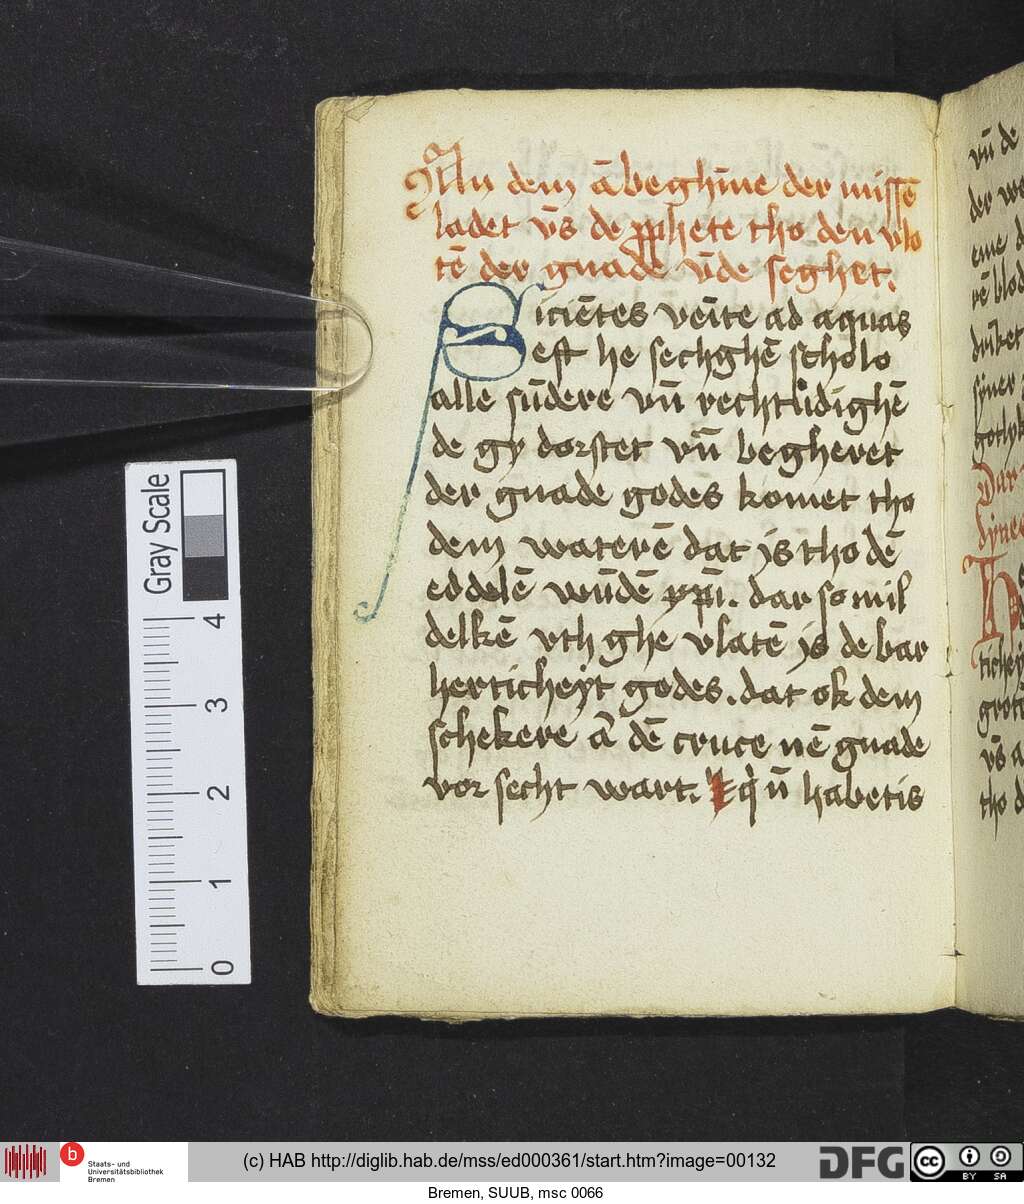 An dem ābeghīne der missē
ladet vn̄s de ꝓphete tho den vlo
tē der gnade vn̄de seghet.
Siciētes veīte ad aquas
est he sechghē scholo
alle sūdere vn̄ rechtůdighē
de gy dorstet vn̄ begheret
der gnade godes komet tho
dem waterē dat is tho dē
eddelē wūdē xp̄i. dar so mil
delkē vth ghe vlatē is de bar
herticheyt godes. dat ok dem
schekere ā dē cruce nē gnade
vor secht wart. Et q̇ n̄ habetis
vn̄ dē
der
eme
dār
tho
Gray Scale
4
3
2
1
0
b
Staats- und
Universitätsbibliothek
Bremen
(c) HAB http://diglib.hab.de/mss/ed000361/start.htm?image=00132
DFG
cc BY SA
Bremen, SUUB, msc 0066